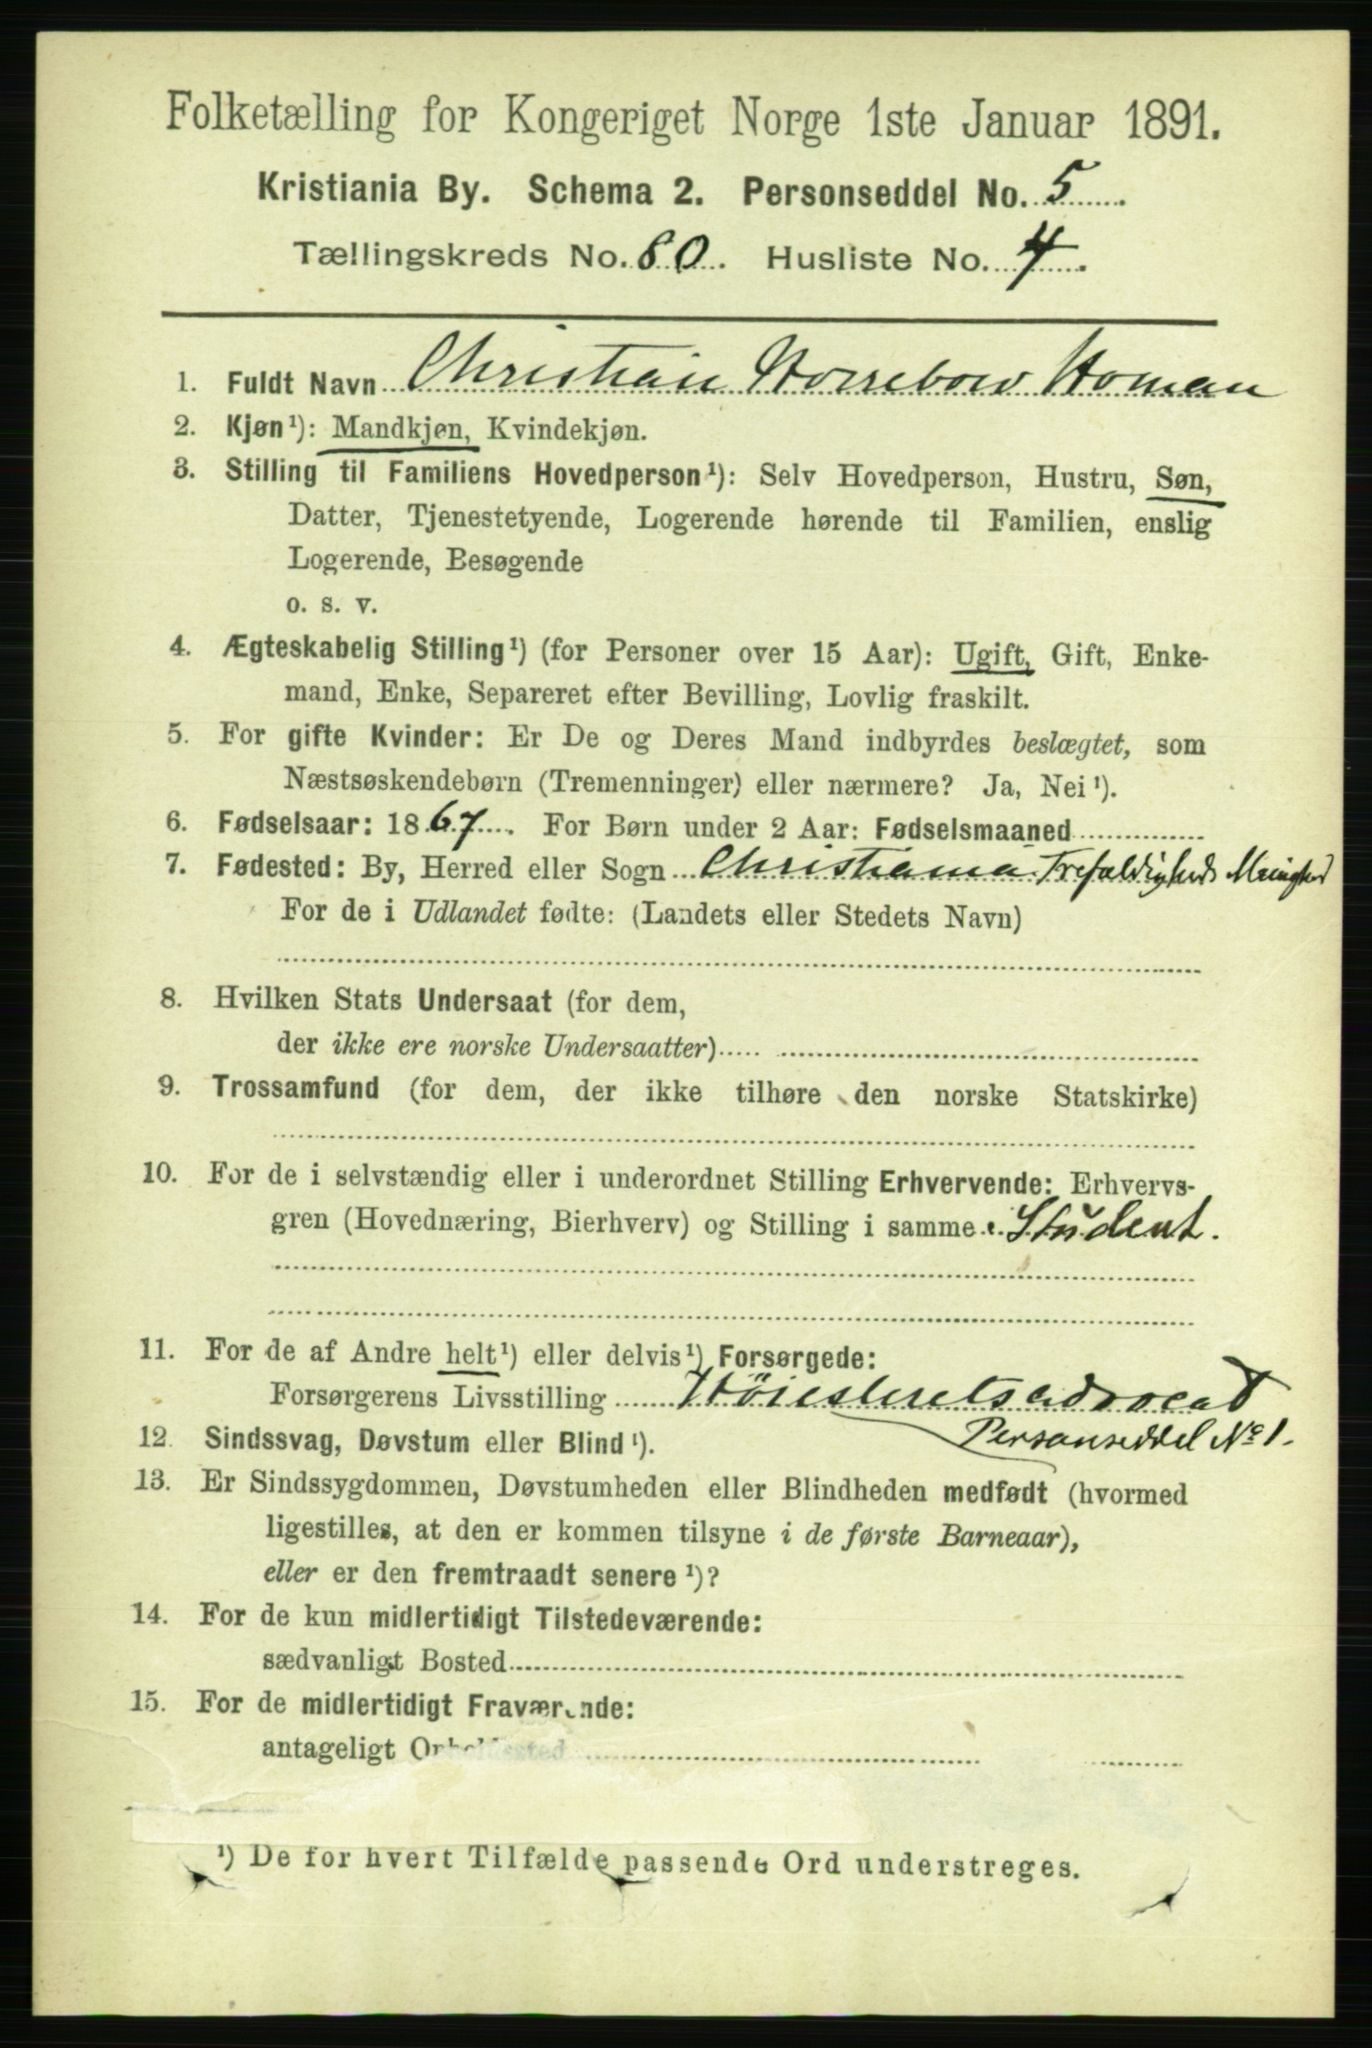 Folketælling for Kongeriget Norge 1ste Januar 1891.
Kristiania By. Schema 2. Personseddel No. 5
Tællingskreds No. 80. Husliste No. 4.
1. Fuldt Navn Christian Horrebow Homan
2. Kjøn¹): Mandkjøn, Kvindekjøn.
3. Stilling til Familiens Hovedperson¹): Selv Hovedperson, Hustru, Søn,
Datter, Tjenestetyende, Logerende hørende til Familien, enslig
Logerende, Besøgende
o. s. v.
4. Ægteskabelig Stilling¹) (for Personer over 15 Aar): Ugift, Gift, Enke-
mand, Enke, Separeret efter Bevilling, Lovlig fraskilt.
5. For gifte Kvinder: Er De og Deres Mand indbyrdes beslægtet, som
Næstsøskendebørn (Tremenninger) eller nærmere? Ja, Nei¹).
6. Fødselsaar: 1867. For Børn under 2 Aar: Fødselsmaaned
7. Fødested: By, Herred eller Sogn Christiania Trefoldigheds Menighed
For de i Udlandet fødte: (Landets eller Stedets Navn)
8. Hvilken Stats Undersaat (for dem,
der ikke ere norske Undersaatter)
9. Trossamfund (for dem, der ikke tilhøre den norske Statskirke)
10. For de i selvstændig eller i underordnet Stilling Erhvervende: Erhvervs-
gren (Hovednæring, Bierhverv) og Stilling i samme Student.
11. For de af Andre helt¹) eller delvis¹) Forsørgede:
Forsørgerens Livsstilling Höiesteretsadvocat
Personseddel No 1.
12. Sindssvag, Døvstum eller Blind¹).
13. Er Sindssygdommen, Døvstumheden eller Blindheden medfødt (hvormed
ligestilles, at den er kommen tilsyne i de første Barneaar),
eller er den fremtraadt senere¹)?
14. For de kun midlertidigt Tilstedeværende:
sædvanligt Bosted
15. For de midlertidigt Fraværende:
antageligt Opholdssted
¹) De for hvert Tilfælde passende Ord understreges.